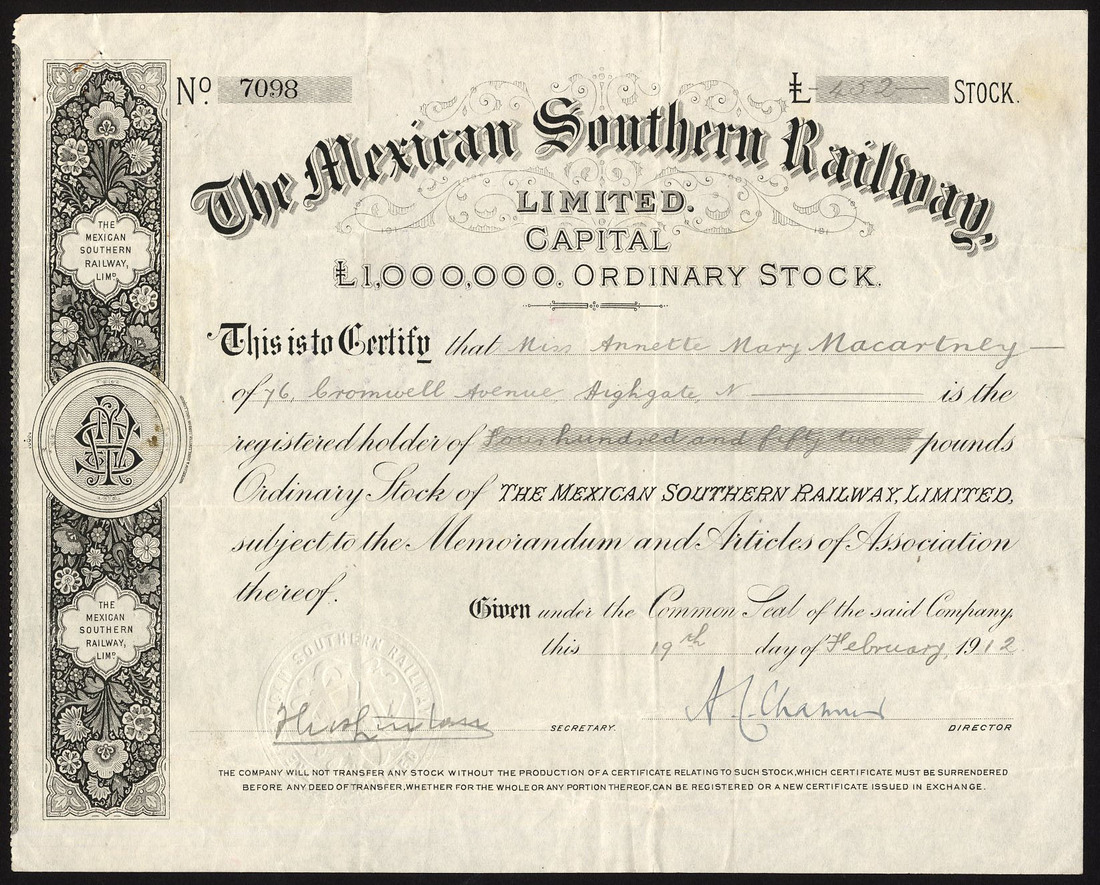 No. 7098
£ 452 STOCK.
The Mexican Southern Railway,
LIMITED.
CAPITAL
£1,000,000. ORDINARY STOCK.
This is to Certify that Miss Annette Mary Macartney
of 76, Cromwell Avenue Highgate, N is the
registered holder of Four hundred and fifty two pounds
Ordinary Stock of THE MEXICAN SOUTHERN RAILWAY, LIMITED,
subject to the Memorandum and Articles of Association
thereof.
Given under the Common Seal of the said Company,
this 19th day of February, 1912.
SECRETARY.
DIRECTOR
THE COMPANY WILL NOT TRANSFER ANY STOCK WITHOUT THE PRODUCTION OF A CERTIFICATE RELATING TO SUCH STOCK, WHICH CERTIFICATE MUST BE SURRENDERED
BEFORE ANY DEED OF TRANSFER, WHETHER FOR THE WHOLE OR ANY PORTION THEREOF, CAN BE REGISTERED OR A NEW CERTIFICATE ISSUED IN EXCHANGE.
THE
MEXICAN
SOUTHERN
RAILWAY,
LIMD.
THE
MEXICAN
SOUTHERN
RAILWAY,
LIMD.
SOUTHERN RAILWAY